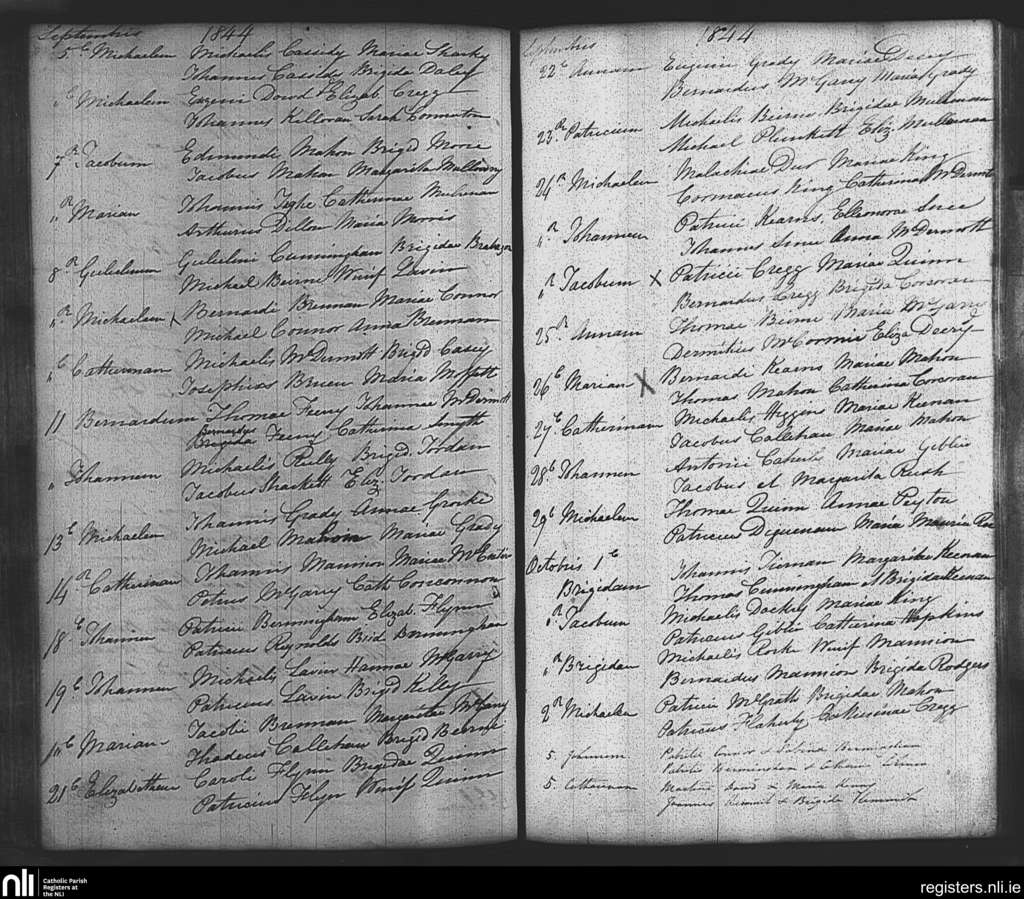 Septembris 1844
5 Michaelem Michaelis Cassidy Mariae Sharky
Johannes Cassidy Brigida Daley
Michaelem Eugenii Dowd & Elizab Cregg
Johannes Killoran Sarah
7 Jacobum Edmundi Mahon Brigd
Jacobus Mahon Margarita
" Mariam Johannis Tighe Catherinae
Arthurus Dillon Maria Morris
8 Gulielmum Gulielmi Cunningham Brigidae Brabazon
Michael Beirne Winif Lavin
" Michaelem X Bernardi Brennan Mariae Connor
Michael Connor Anna Brennan
" Catherinam Michaelis McDermott Brigd Casey
Josephus Bruen Maria
11 Bernardum Thomae Feeny Johannae McDermott
Bernardus Feeny Catherina Smyth
" Johannem Michaelis Reilly Brigd Jordan
Jacobus Eliz Jordan
13 Michaelem Johannis Grady Annae
Michael Mahon Mariae Grady
14 Catherinam Johannis Mannion Mariae
Petrus McGarry Cath Concannon
18 Johannem Patricii Bermingham Elizab. Flynn
Patricius Reynolds Brid Bermingham
19 Johannem Michaelis Lavin Hannae McGarry
Patricius Lavin Brigd Kelly
" Mariam Jacobi Brennan Margaritae McGarry
Thadeus Callehan Brigd
21 Elizabetham Caroli Flynn Brigidae Quinn
Patricius Flyn Winif Quinn
Septembris 1844
22 Annam Eugenii Grady Mariae
Bernardus McGarry Maria Grady
23 Patricium Michaelis Beirne Brigidae
Michael Plunkett Eliz
24 Michaelem Malachiae Mariae King
Cormacus King Catherina McDermott
" Johannem Patricii Kearns Elleonorae
Johannes Anna McDermott
" Jacobum X Patricii Cregg Mariae Quinn
Bernardus Cregg Brigida Corcoran
25 Annam Thomae Beirne Maria McGarry
Eliza
26 Mariam X Bernardi Kearns Mariae Mahon
Thomas Mahon Catherina Corcoran
27 Catherinam Michaelis Higgins Mariae Keenan
Jacobus Callehan Mariae Mahon
28 Johannem Antonii Mariae Giblin
Jacobus et Margarita Rush
29 Michaelem Thomae Quinn Annae Peyton
Patricius Maria
Octobris 1 Johannis Tiernan Margaritae Keenan
Brigidam Thomas Cunningham et Brigida Keenan
" Jacobum Michaelis Mariae King
Patricius Giblin Catherina Hopkins
" Brigidam Michaelis Rorke Winif Mannion
Bernardus Mannion Brigida Rodgers
2 Michaelem Patricii McGrath Brigidae Mahon
Patricius Flaherty Catherinae Cregg
5. Johannem Connor & Bermingham
Bermingham &
5. Catherinam & Maria
& Brigida
nli Catholic Parish
Registers at
the NLI
registers.nli.ie